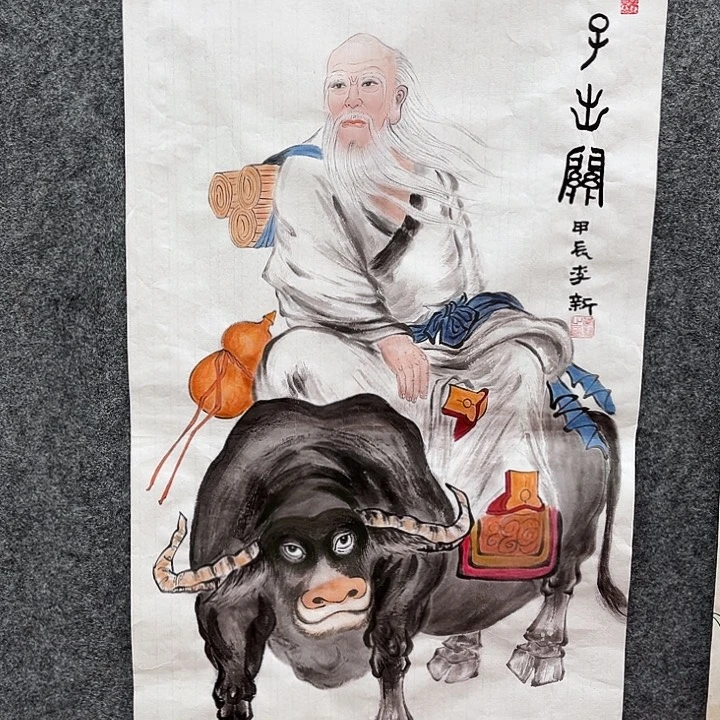 子出關
甲辰李新